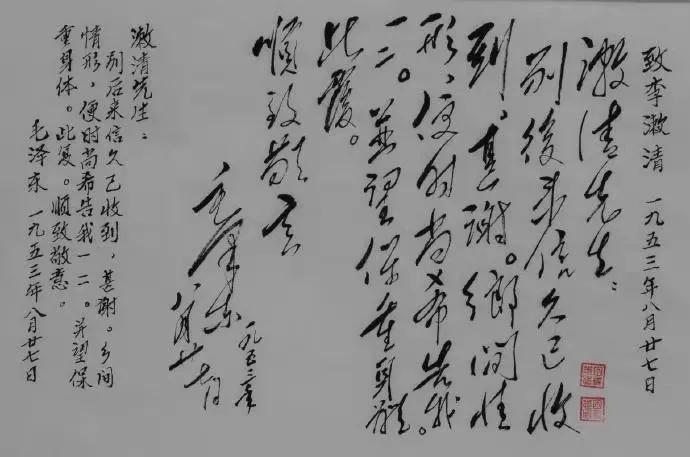 致李漱清 一九五三年八月廿七日
漱清先生：
别後来信久已收
到，甚谢。乡间情
形，便时尚希告我
一二。并望保重身体
此覆。
顺致敬意
毛泽东
一九五三年
八月廿七日
漱清先生：
别后来信久已收到，甚谢。乡间
情形，便时尚希告我一二。并望保
重身体。此复。顺致敬意。
毛泽东 一九五三年八月廿七日